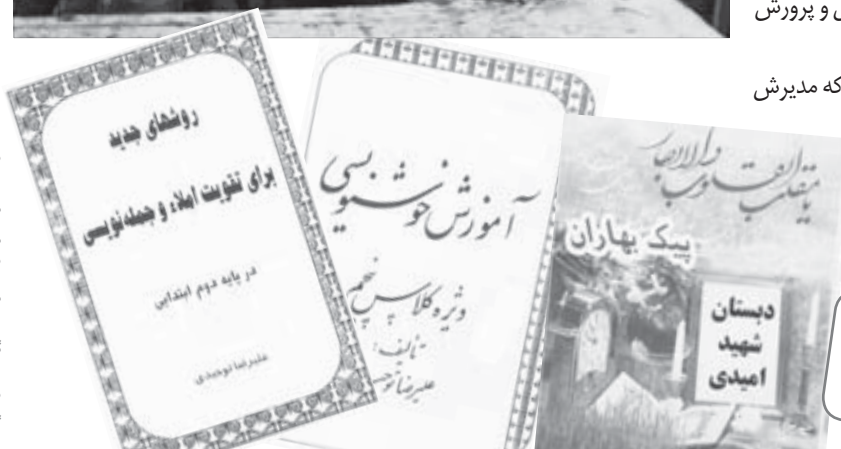 و پرورش
که مدیرش
روشهای جدید
برای تقویت املاء و جمله‌نویسی
در پایه دوم ابتدایی
علیرضا توحیدی
آموزش خوشنویسی
ویژه کلاس پنجم
تألیف:
علیرضا
یا مقلب القلوب و الابصار
پیک بهاران
دبستان
شهید
امیدی